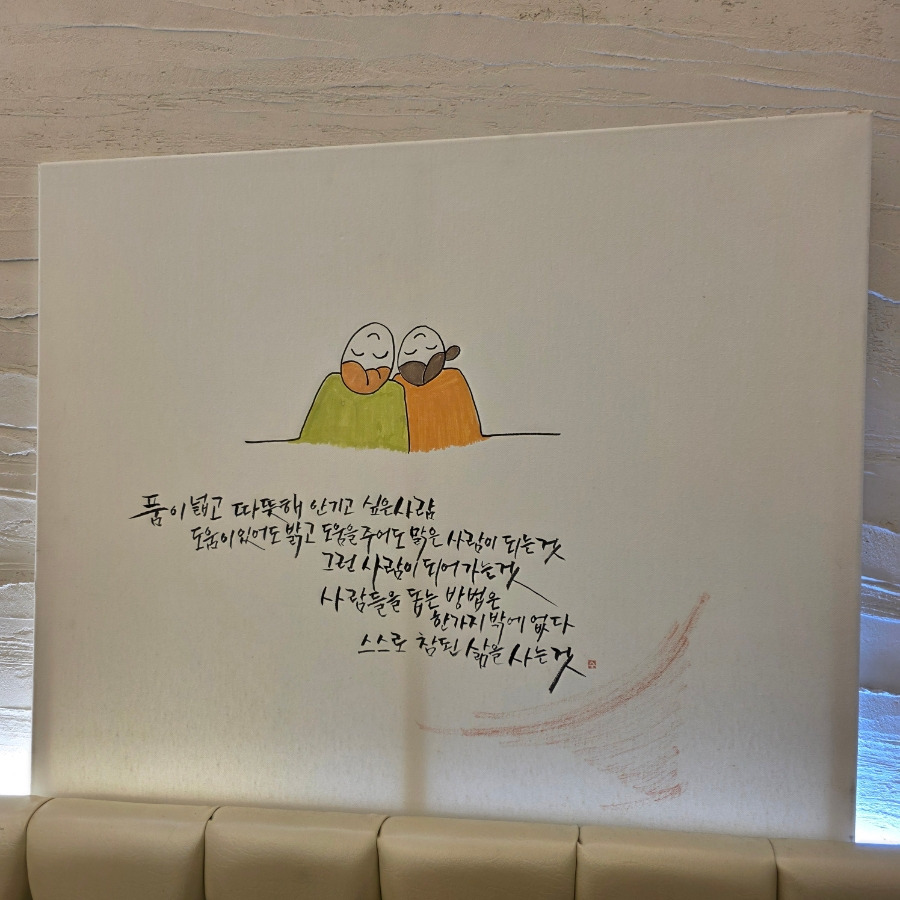 품이 넓고 따뜻해 안기고 싶은 사람
도움이 있어도 밝고 도움을 주어도 맑은 사람이 되는 것
그런 사람이 되어 가는 것
사람들을 돕는 방법은
한가지 밖에 없다
스스로 참된 삶을 사는 것